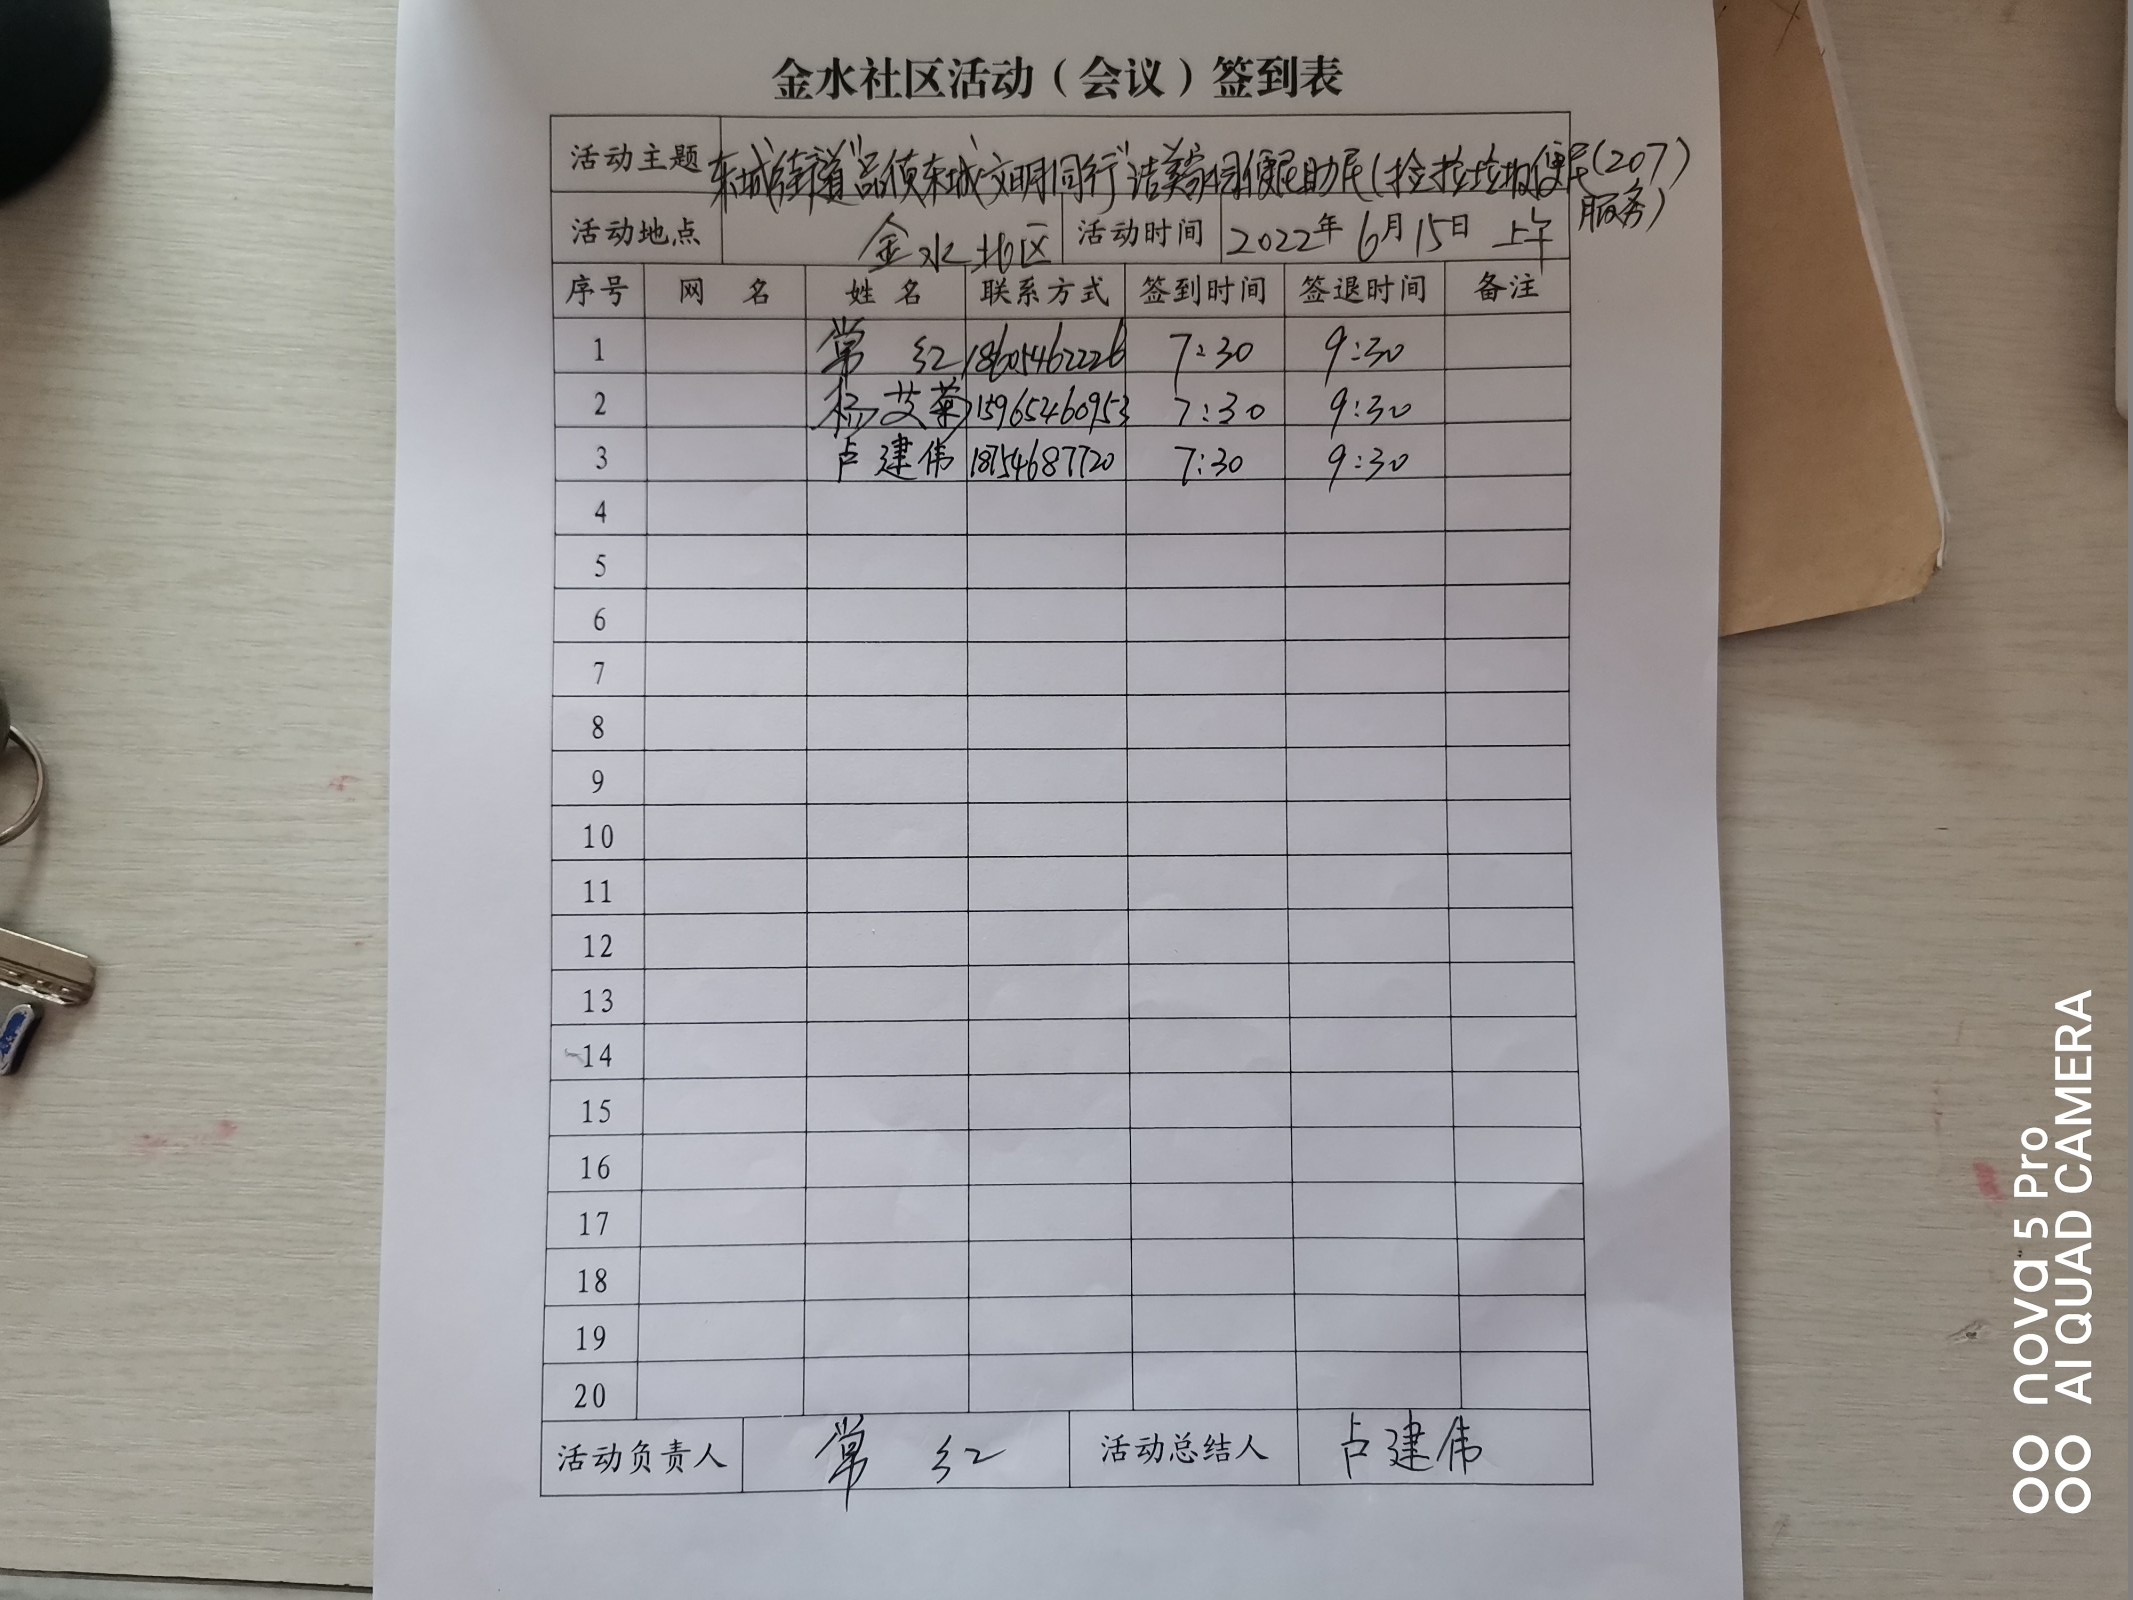 金水社区活动（会议）签到表
活动主题 东城街道"品质东城 文明同行"洁美家园便民助民(捡拾垃圾便民(207)
服务)
活动地点 金水北区 活动时间 2022年6月15日 上午
序号 网 名 姓 名 联系方式 签到时间 签退时间 备注
1 常 红 18605462226 7:30 9:30
2 杨艾菊 15965460953 7:30 9:30
3 卢建伟 18754687720 7:30 9:30
4
5
6
7
8
9
10
11
12
13
14
15
16
17
18
19
20
活动负责人 常 红 活动总结人 卢建伟
nova 5 Pro
AI QUAD CAMERA